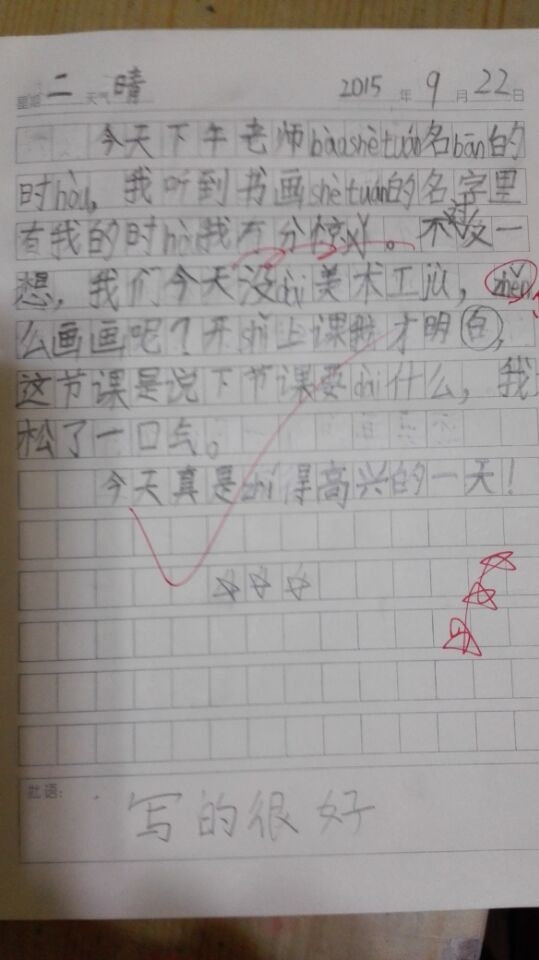 星期 二 天气 晴 2015 年 9 月 22 日
今天下午老师bàoshètuán名bān的
时hòu，我听到书画shètuán的名字里
有我的时hòu我万分惊xǐ。不过又一
想，我们今天没dài美术工jù，zhěn
么画画呢？开shǐ上课啦才明白，
这节课是说下节课要dài什么，我
松了一口气。
今天真是zhí得高兴的一天！
批语：
写的很好